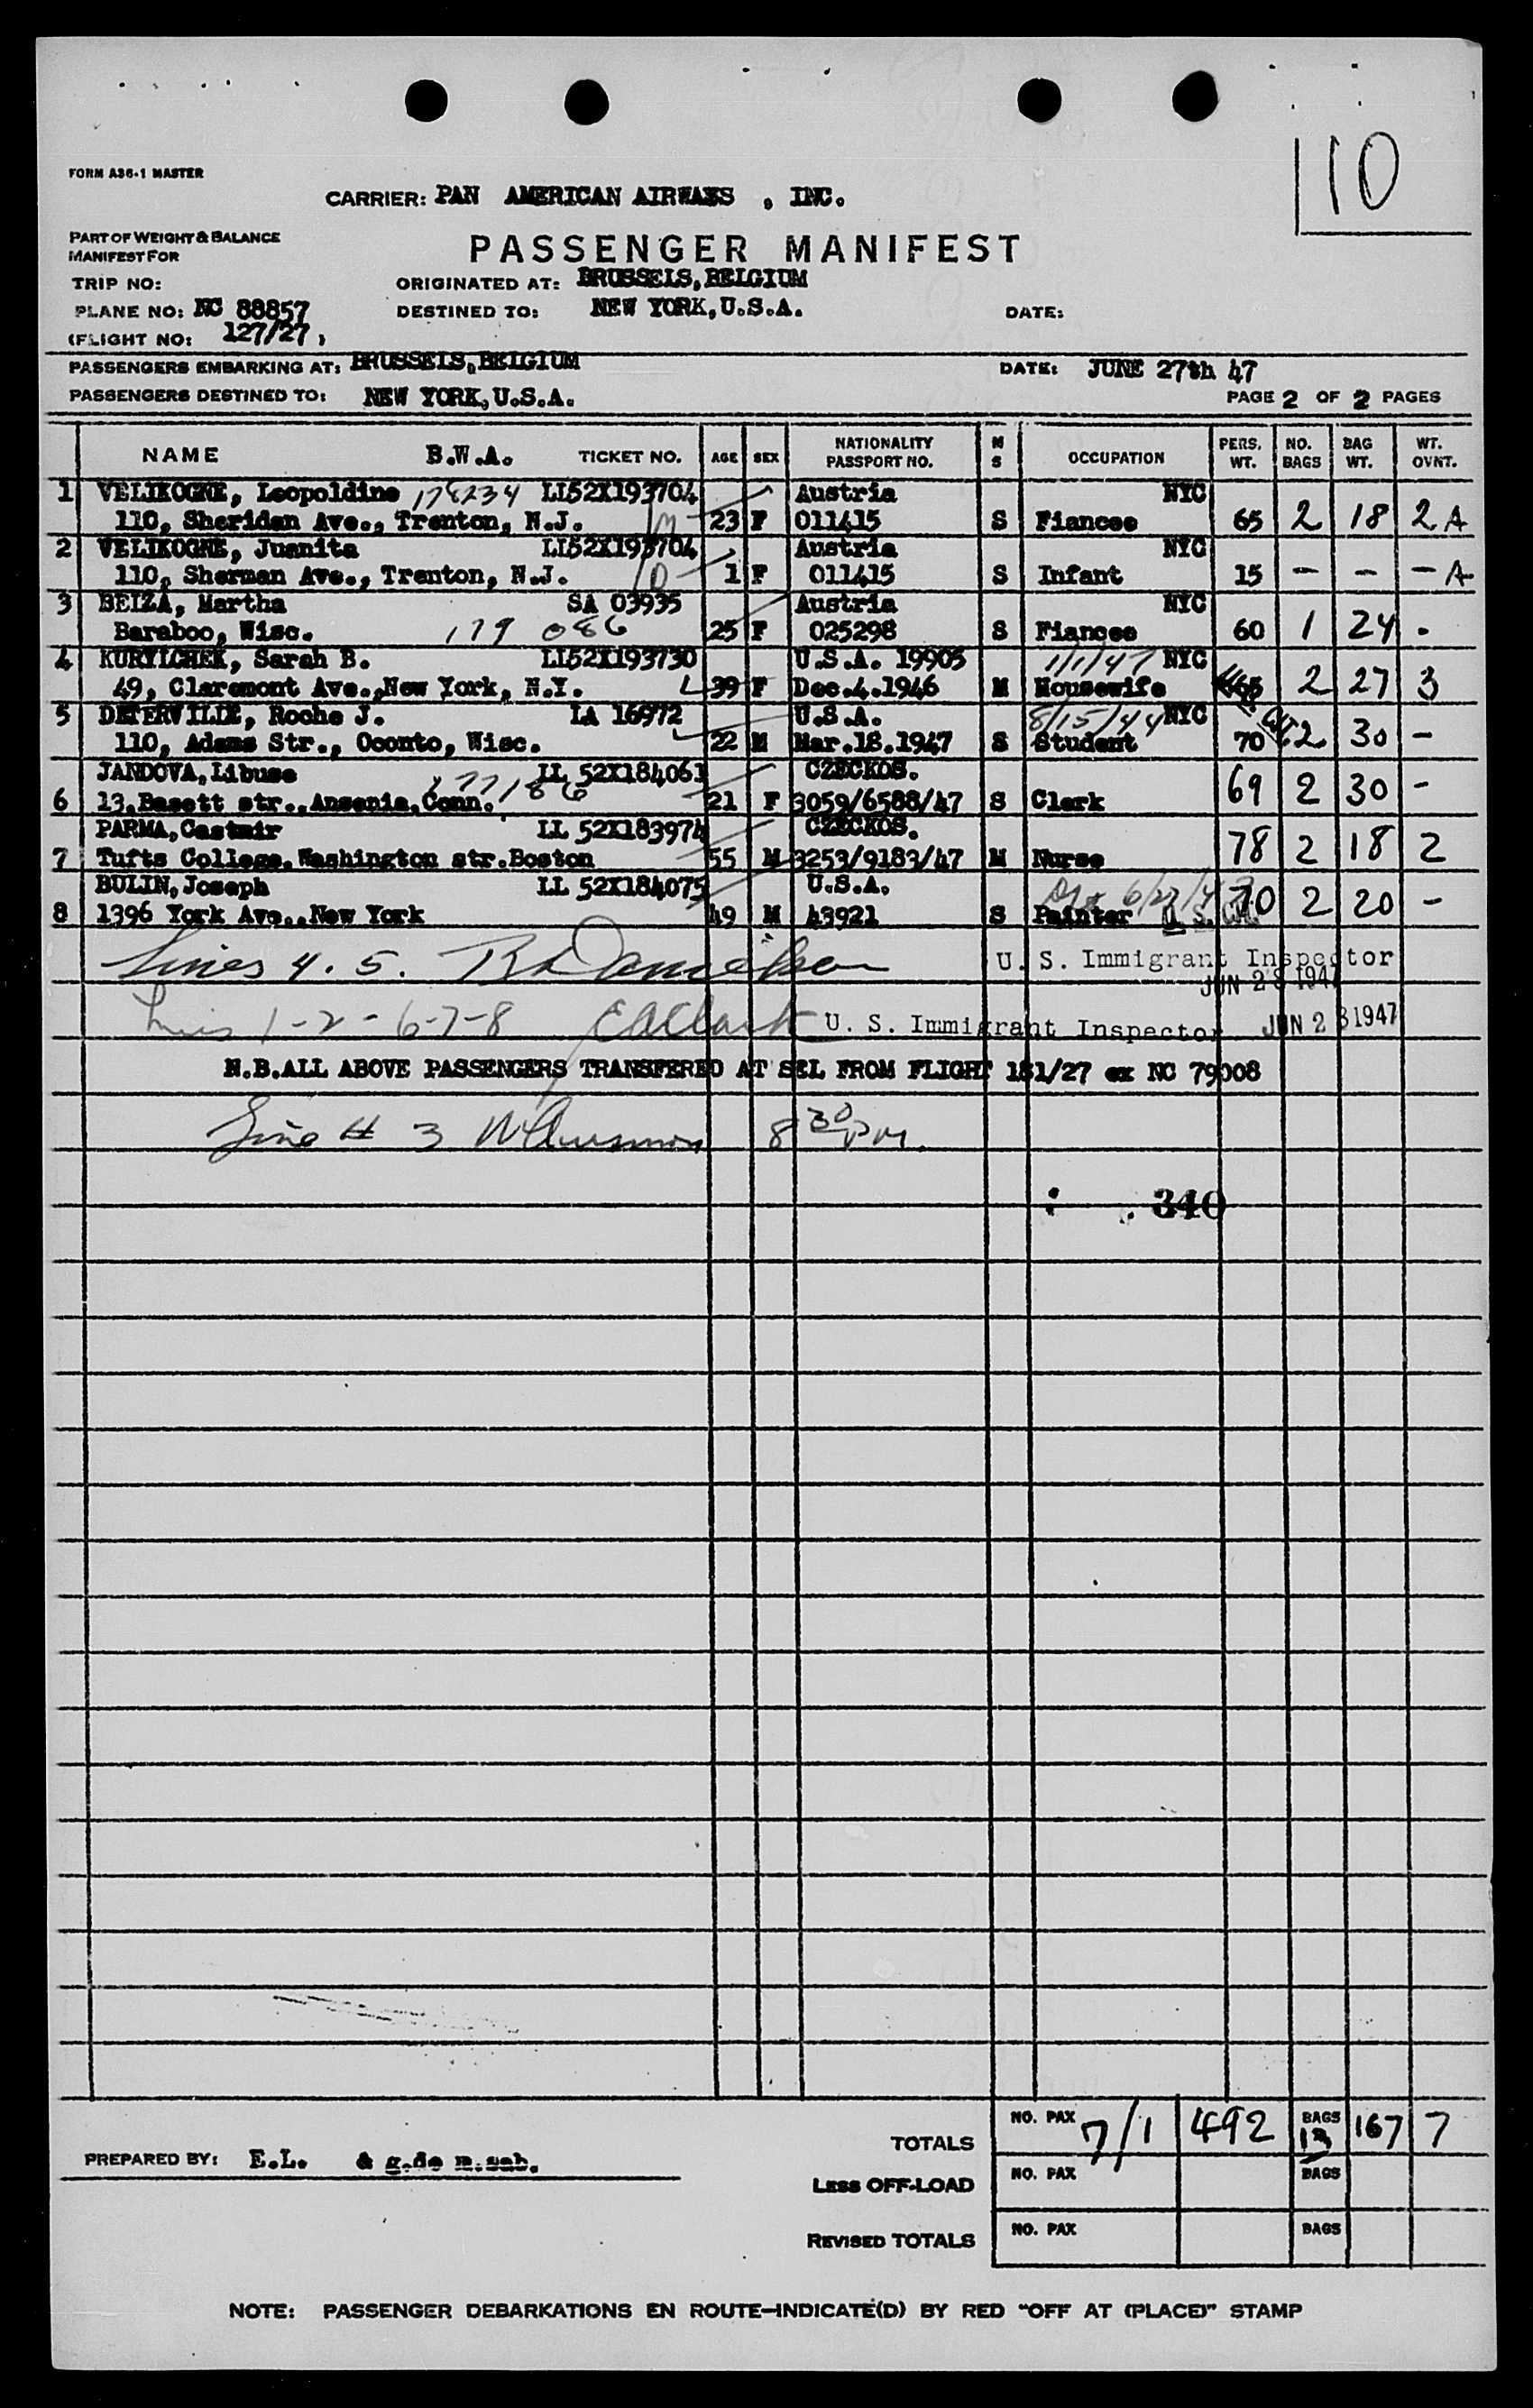 110
FORM A36-1 MASTER
CARRIER: PAN AMERICAN AIRWAYS , INC.
PART OF WEIGHT & BALANCE
MANIFEST FOR
PASSENGER MANIFEST
TRIP NO: ORIGINATED AT: BRUSSELS, BELGIUM
PLANE NO: NC 88857 DESTINED TO: NEW YORK, U.S.A. DATE:
(FLIGHT NO: 127/27 )
PASSENGERS EMBARKING AT: BRUSSELS, BELGIUM DATE: JUNE 27th 47
PASSENGERS DESTINED TO: NEW YORK, U.S.A. PAGE 2 OF 2 PAGES
NAME B.W.A. TICKET NO. AGE SEX NATIONALITY PASSPORT NO. M S OCCUPATION PERS. WT. NO. BAGS BAG WT. WT. OVNT.
1 VELIKOGNE, Leopoldine 178234 LL52X193704 Austria NYC
110, Sheridan Ave., Trenton, N.J. M 23 F 011415 S Fiancee 65 2 18 2 A
2 VELIKOGNE, Juanita LL52X193704 Austria NYC
110, Sherman Ave., Trenton, N.J. D 1 F 011415 S Infant 15 - - - A
3 BEIZA, Martha SA 03935 Austria NYC
Baraboo, Wisc. 179 086 25 F 025298 S Fiancee 60 1 24 .
4 KURYLCHEK, Sarah B. LL52X193730 U.S.A. 19905 1/1/47 NYC
49, Claremont Ave., New York, N.Y. 39 F Dec.4.1946 M Housewife 65 2 27 3
5 DETERVILLE, Roche J. LA 16972 U.S.A. 8/15/44 NYC
110, Adams Str., Oconto, Wisc. 22 M Mar.18.1947 S Student 70 2 30 -
JANDOVA, Libuse 177186 LL 52X184061 CZECKOS.
6 13, Basett str., Ansonia, Conn. 21 F 3059/6588/47 S Clerk 69 2 30 -
PARMA, Casimir LL 52X183974 CZECKOS.
7 Tufts College, Washington str. Boston 55 M 3253/9183/47 M Nurse 78 2 18 2
BULIN, Joseph LL 52X184075 U.S.A.
8 1396 York Ave., New York 49 M 43921 S Painter 70 2 20 -
Lines 4. 5. U. S. Immigrant Inspector
JUN 28 1947
Lines 1-2-6-7-8 U. S. Immigrant Inspector JUN 28 1947
N.B. ALL ABOVE PASSENGERS TRANSFERED AT SEL FROM FLIGHT 151/27 ex NC 79008
Line # 3 8 30 PM.
340
TOTALS NO. PAX 7/1 492 BAGS 13 167 7
PREPARED BY: E.L. & g.de m.sab.
LESS OFF-LOAD NO. PAX BAGS
REVISED TOTALS NO. PAX BAGS
NOTE: PASSENGER DEBARKATIONS EN ROUTE—INDICATE(D) BY RED "OFF AT (PLACE)" STAMP